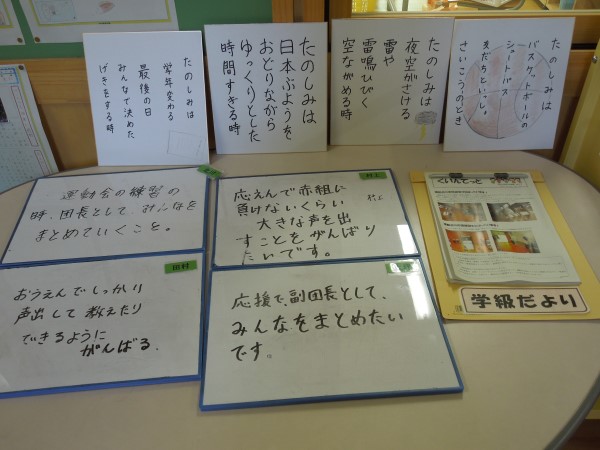 たのしみは
学年変わる
最後の日
みんなで決めた
げきをする時
たのしみは
日本ぶようを
おどりながら
ゆっくりとした
時間すぎる時
たのしみは
夜空がさける
雷や
雷鳴ひびく
空ながめる時
たのしみは
バスケットボールの
シュートパス
友だちといっしょ
さいこうのとき
運動会の練習の
時、団長として、みんなを
まとめていくこと。
村上
応えんで赤組に
負けないくらい
大きな声を出
すことをがんばり
たいです。
田村
おうえんでしっかり
声出して教えたり
できるように
がんばる。
応援で、副団長として、
みんなをまとめたい
です。
くいんてっと
学級だより